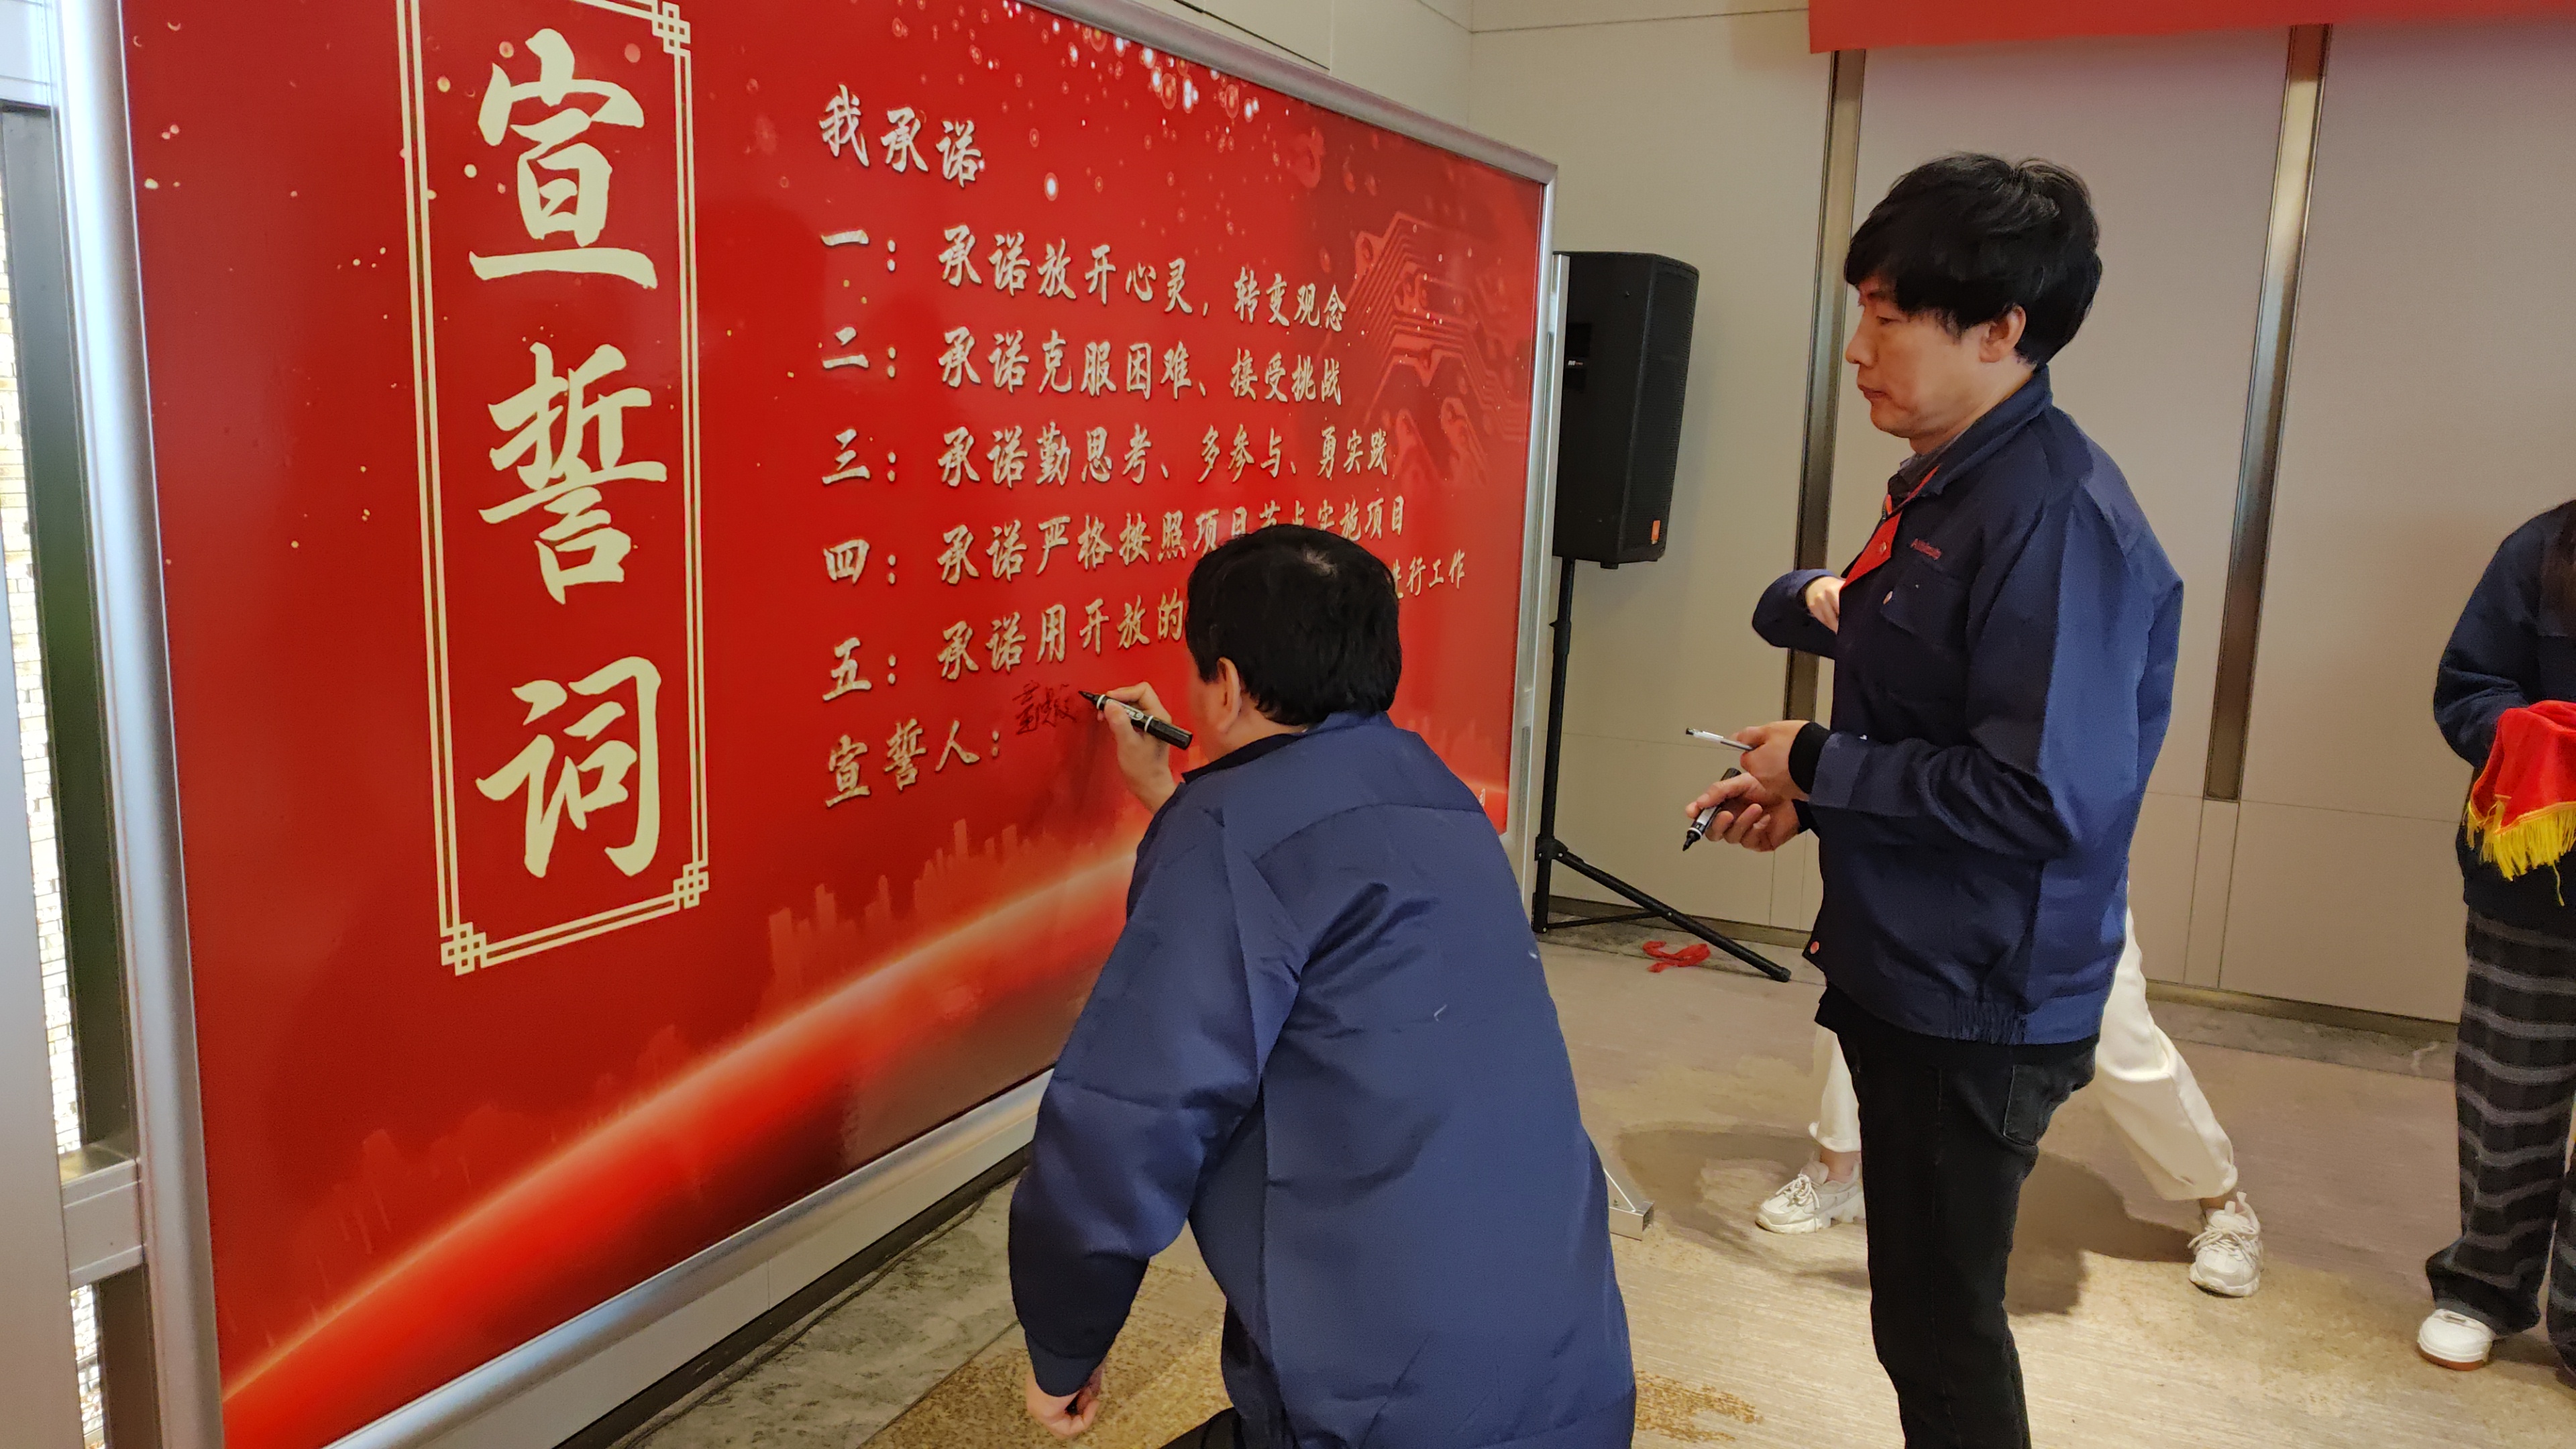 宣誓词
我承诺
一：承诺放开心灵，转变观念
二：承诺克服困难、接受挑战
三：承诺勤思考、多参与、勇实践
四：承诺严格按照项目节点实施项目
五：承诺用开放的 进行工作
宣誓人：